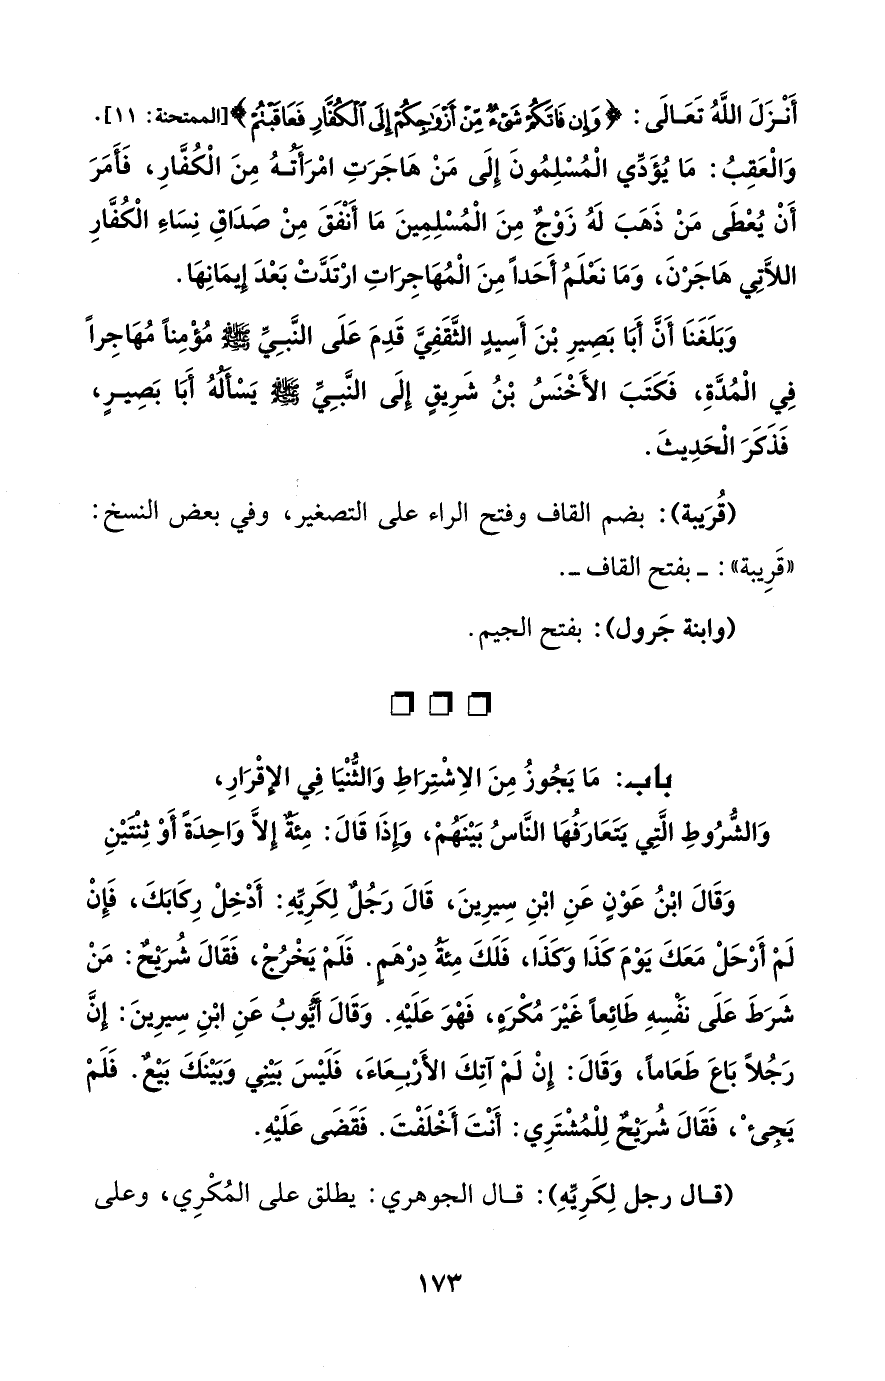 أَنْزَلَ اللَّهُ تَعَالَى: ﴿وَإِن فَاتَكُمْ شَىْءٌ مِّنْ أَزْوَٰجِكُمْ إِلَى ٱلْكُفَّارِ فَعَاقَبْتُمْ﴾[الممتحنة: ١١].
وَالْعَقِبُ: مَا يُؤَدِّي الْمُسْلِمُونَ إِلَى مَنْ هَاجَرَتِ امْرَأَتُهُ مِنَ الْكُفَّارِ، فَأَمَرَ
أَنْ يُعْطَى مَنْ ذَهَبَ لَهُ زَوْجٌ مِنَ الْمُسْلِمِينَ مَا أَنْفَقَ مِنْ صَدَاقِ نِسَاءِ الْكُفَّارِ
اللاَّتِي هَاجَرْنَ، وَمَا نَعْلَمُ أَحَداً مِنَ الْمُهَاجِرَاتِ ارْتَدَّتْ بَعْدَ إِيمَانِهَا.
وَبَلَغَنَا أَنَّ أَبَا بَصِيرِ بْنَ أَسِيدٍ الثَّقَفِيَّ قَدِمَ عَلَى النَّبِيِّ ﷺ مُؤْمِناً مُهَاجِراً
فِي الْمُدَّةِ، فَكَتَبَ الأَخْنَسُ بْنُ شَرِيقٍ إِلَى النَّبِيِّ ﷺ يَسْأَلُهُ أَبَا بَصِيرٍ،
فَذَكَرَ الْحَدِيثَ.
(قُرَيبة): بضم القاف وفتح الراء على التصغير، وفي بعض النسخ:
«قَرِيبة»: ـ بفتح القاف ـ.
(وابنة جَرول): بفتح الجيم.
❒ ❒ ❒
باب: مَا يَجُوزُ مِنَ الاِشْتِرَاطِ وَالثُّنْيَا فِي الإِقْرَارِ،
وَالشُّرُوطِ الَّتِي يَتَعَارَفُهَا النَّاسُ بَيْنَهُمْ، وَإِذَا قَالَ: مِئَةٌ إِلاَّ وَاحِدَةً أَوْ ثِنْتَيْنِ
وَقَالَ ابْنُ عَوْنٍ عَنِ ابْنِ سِيرِينَ، قَالَ رَجُلٌ لِكَرِيِّهِ: أَدْخِلْ رِكَابَكَ، فَإِنْ
لَمْ أَرْحَلْ مَعَكَ يَوْمَ كَذَا وَكَذَا، فَلَكَ مِئَةُ دِرْهَمٍ. فَلَمْ يَخْرُجْ، فَقَالَ شُرَيْحٌ: مَنْ
شَرَطَ عَلَى نَفْسِهِ طَائِعاً غَيْرَ مُكْرَهٍ، فَهْوَ عَلَيْهِ. وَقَالَ أَيُّوبُ عَنِ ابْنِ سِيرِينَ: إِنَّ
رَجُلاً بَاعَ طَعَاماً، وَقَالَ: إِنْ لَمْ آتِكَ الأَرْبِعَاءَ، فَلَيْسَ بَيْنِي وَبَيْنَكَ بَيْعٌ. فَلَمْ
يَجِىءْ، فَقَالَ شُرَيْحٌ لِلْمُشْتَرِي: أَنْتَ أَخْلَفْتَ. فَقَضَى عَلَيْهِ.
(قال رجل لِكَرِيِّهِ): قال الجوهري: يطلق على المُكْرِي، وعلى
١٧٣